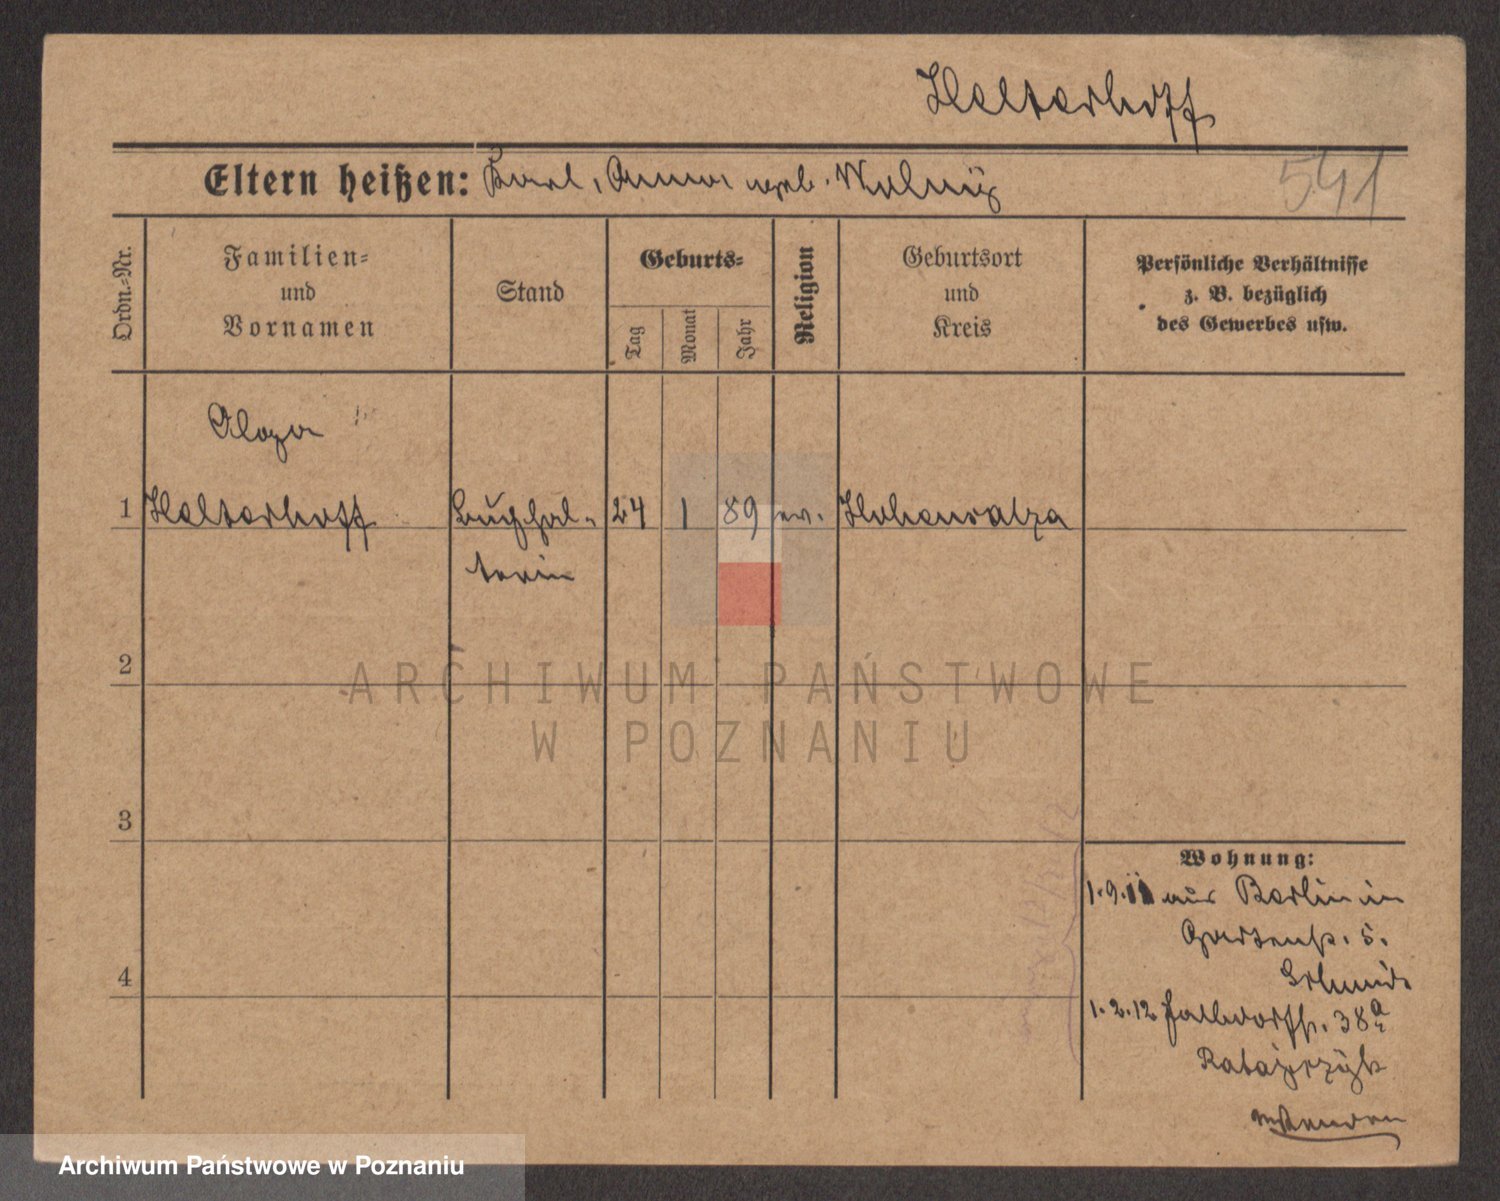 Halterhoff
Eltern heißen: Karl, Anna, geb.
541
Ordn.-Nr.
Familien-
und
Vornamen
Stand
Geburts-
Tag
Monat
Jahr
Religion
Geburtsort
und
Kreis
Persönliche Verhältnisse
z. B. bezüglich
des Gewerbes usw.
1 Halterhoff Buchhal- 24 1 89 ev. Hohensalza
terin
ARCHIWUM PAŃSTWOWE
W POZNANIU
2
3
4
Wohnung:
1.9.11 aus Berlin in
Gartenstr. 5.
1.2.12 38a
Ratajczyk
Archiwum Państwowe w Poznaniu